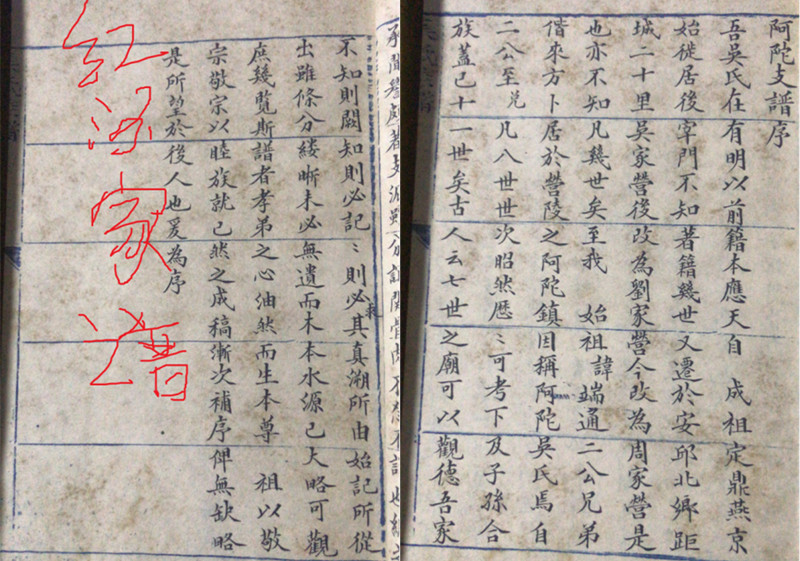 阿陀支譜序
吾吳氏在有明以前籍本應天自 成祖定鼎燕京
始徙居後宰門不知著籍幾世又遷於安邱北鄉距
城二十里吳家營後改為劉家營今改為周家營是
也亦不知凡幾世矣至我 始祖諱端通二公兄弟
偕來方卜居於營陵之阿陀鎮因稱阿陀吳氏焉自
二公至兌凡八世世次昭然歷〻可考下及子孫合
族蓋已十一世矣古人云七世之廟可以觀德吾家
不知則闕知則必記〻則必求其真溯所由始記所從
出雖條分縷晰未必無遺而木本水源已大略可觀
庶幾覽斯譜者孝弟之心油然而生本尊 祖以敬
宗敬宗以睦族就已然之成稿漸次補序俾無缺略
是所望於後人也爰為序